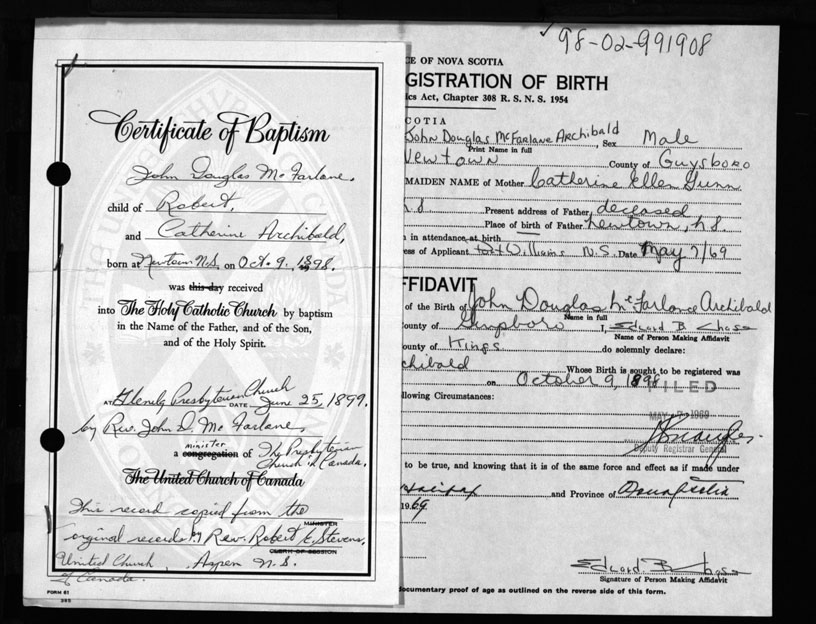 98-02-991908
CE OF NOVA SCOTIA
GISTRATION OF BIRTH
ics Act, Chapter 308 R. S. N. S. 1954
COTIA
John Douglas McFarlane Archibald, Sex Male
Print Name in full
Newtown County of Guysboro
MAIDEN NAME of Mother Catherine Ellen Gunn
N.S Present address of Father, deceased
Place of birth of Father Newtown, N.S.
n in attendance at birth
ess of Applicant Port Williams N.S. Date May 7/69
FFIDAVIT
of the Birth of John Douglas McFarlane Archibald
Name in full
ounty of Guysboro I, Edward B. Chase
Name of Person Making Affidavit
ounty of Kings do solemnly declare:
chibald Whose Birth is sought to be registered was
on October 9, 1898
FILED
llowing Circumstances:
MAY 1969
Deputy Registrar General
to be true, and knowing that it is of the same force and effect as if made under
Halifax and Province of Nova Scotia
1969
Edward B. Chase
Signature of Person Making Affidavit
documentary proof of age as outlined on the reverse side of this form.
Certificate of Baptism
John Douglas McFarlane.
child of Robert,
and Catherine Archibald,
born at Newtown N.S. on Oct. 9, 1898.
was this day received
into The Holy Catholic Church by baptism
in the Name of the Father, and of the Son,
and of the Holy Spirit.
AT Glenelg Presbyterian Church DATE June 25, 1899.
by Rev. John D. McFarlane,
minister
a congregation of The Presbyterian
Church in Canada.
The United Church of Canada
This record copied from the
MINISTER
original records by Rev. Robert E. Stevens,
CLERK OF SESSION
United Church, Aspen N.S.
of Canada.
FORM 61